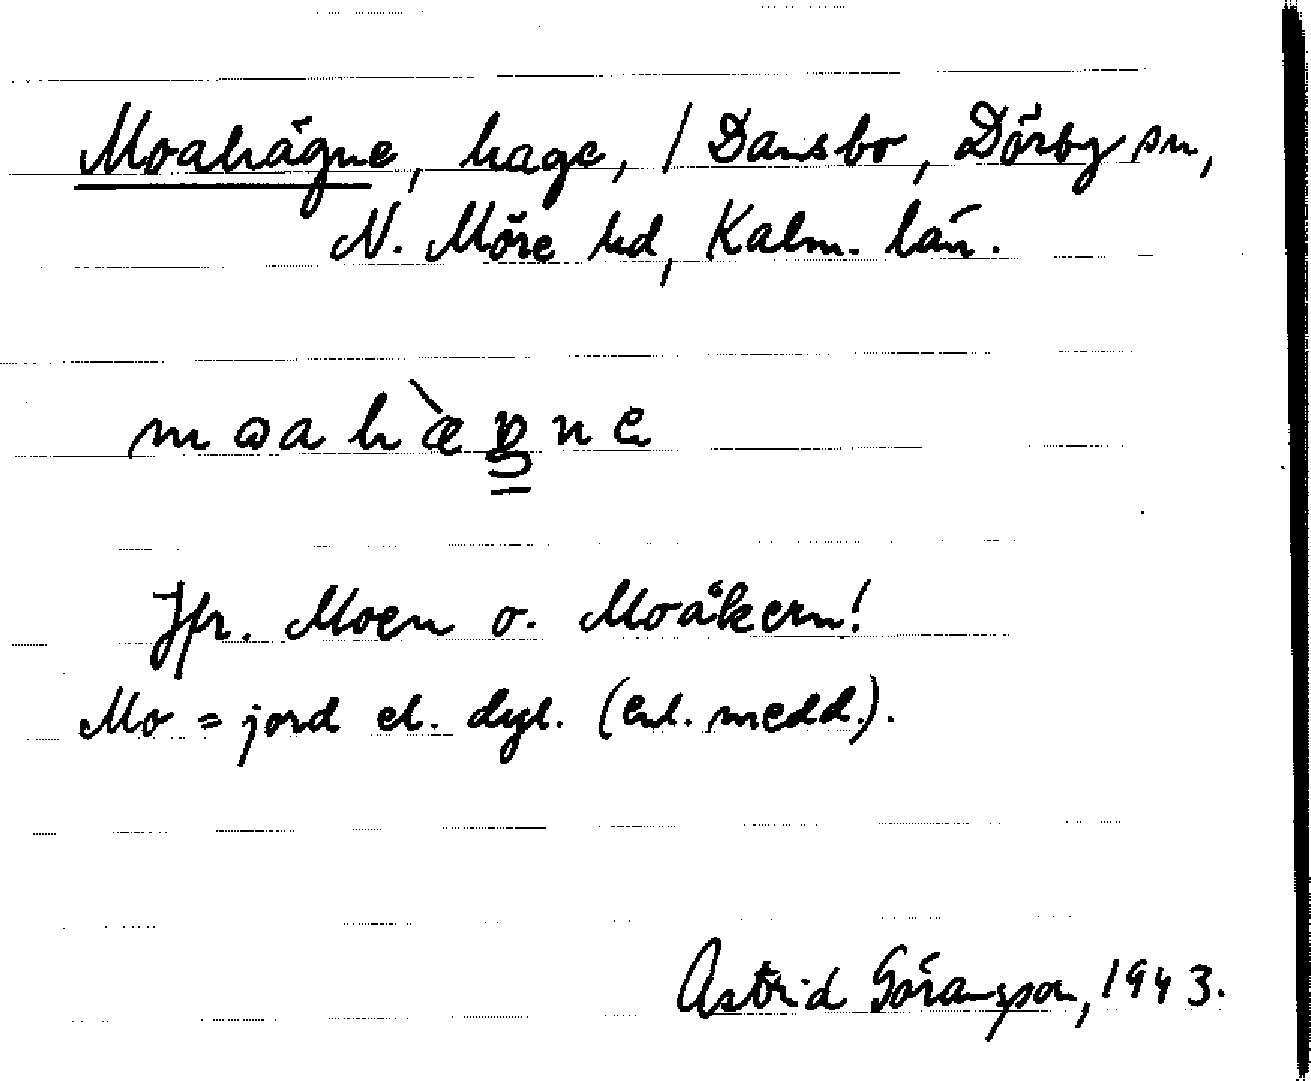 Moahägne, hage, / Dansbo, Dörby sn,
N. Möre hd, Kalm. län.
mɷahæ̀ŋne
Jfr. Moen o. Moåkern!
Mo = jord el. dyl. (enl. medd.).
Astrid Göransson, 1943.